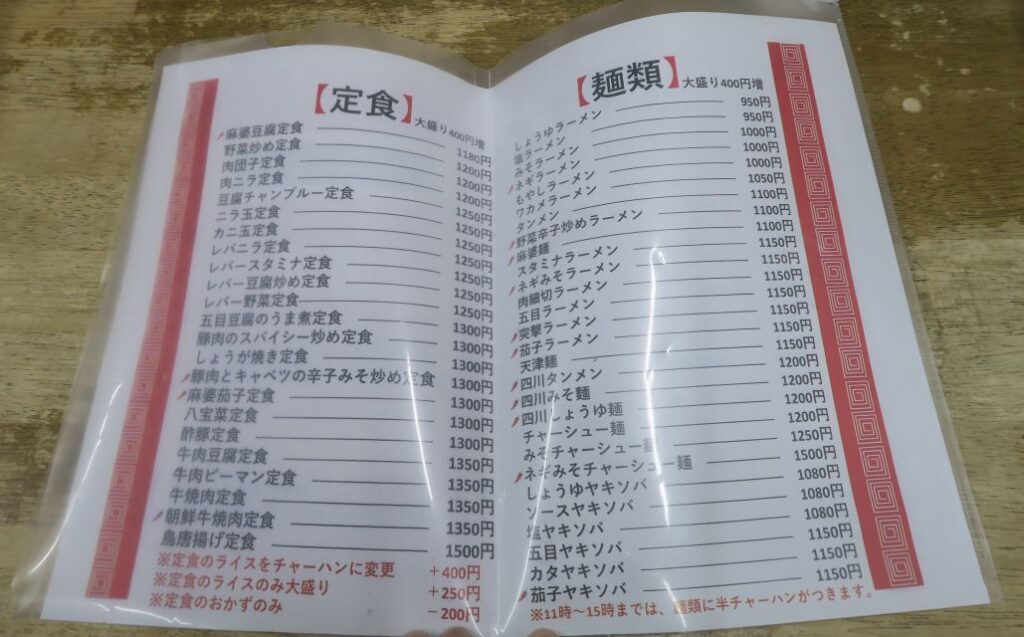 【定食】大盛り400円増
麻婆豆腐定食 1180円
野菜炒め定食 1200円
肉団子定食 1200円
肉ニラ定食 1200円
豆腐チャンプルー定食 1250円
ニラ玉定食 1250円
カニ玉定食 1250円
レバニラ定食 1250円
レバースタミナ定食 1250円
レバー豆腐炒め定食 1250円
レバー野菜定食 1250円
五目豆腐のうま煮定食 1300円
豚肉のスパイシー炒め定食 1300円
しょうが焼き定食 1300円
豚肉とキャベツの辛子みそ炒め定食 1300円
麻婆茄子定食 1300円
八宝菜定食 1300円
酢豚定食 1300円
牛肉豆腐定食 1350円
牛肉ピーマン定食 1350円
牛焼肉定食 1350円
朝鮮牛焼肉定食 1350円
鳥唐揚げ定食 1500円
※定食のライスをチャーハンに変更 +400円
※定食のライスのみ大盛り +250円
※定食のおかずのみ −200円
【麺類】大盛り400円増
しょうゆラーメン 950円
塩ラーメン 950円
みそラーメン 1000円
ネギラーメン 1000円
もやしラーメン 1000円
ワカメラーメン 1050円
タンメン 1100円
野菜辛子炒めラーメン 1100円
麻婆麺 1100円
スタミナラーメン 1150円
ネギみそラーメン 1150円
肉細切りラーメン 1150円
五目ラーメン 1150円
突撃ラーメン 1150円
茄子ラーメン 1150円
天津麺 1150円
四川タンメン 1200円
四川みそ麺 1200円
四川しょうゆ麺 1200円
チャーシュー麺 1200円
みそチャーシュー麺 1250円
ネギみそチャーシュー麺 1500円
しょうゆヤキソバ 1080円
ソースヤキソバ 1080円
塩ヤキソバ 1080円
五目ヤキソバ 1150円
カタヤキソバ 1150円
茄子ヤキソバ 1150円
※11時〜15時までは、麺類に半チャーハンがつきます。